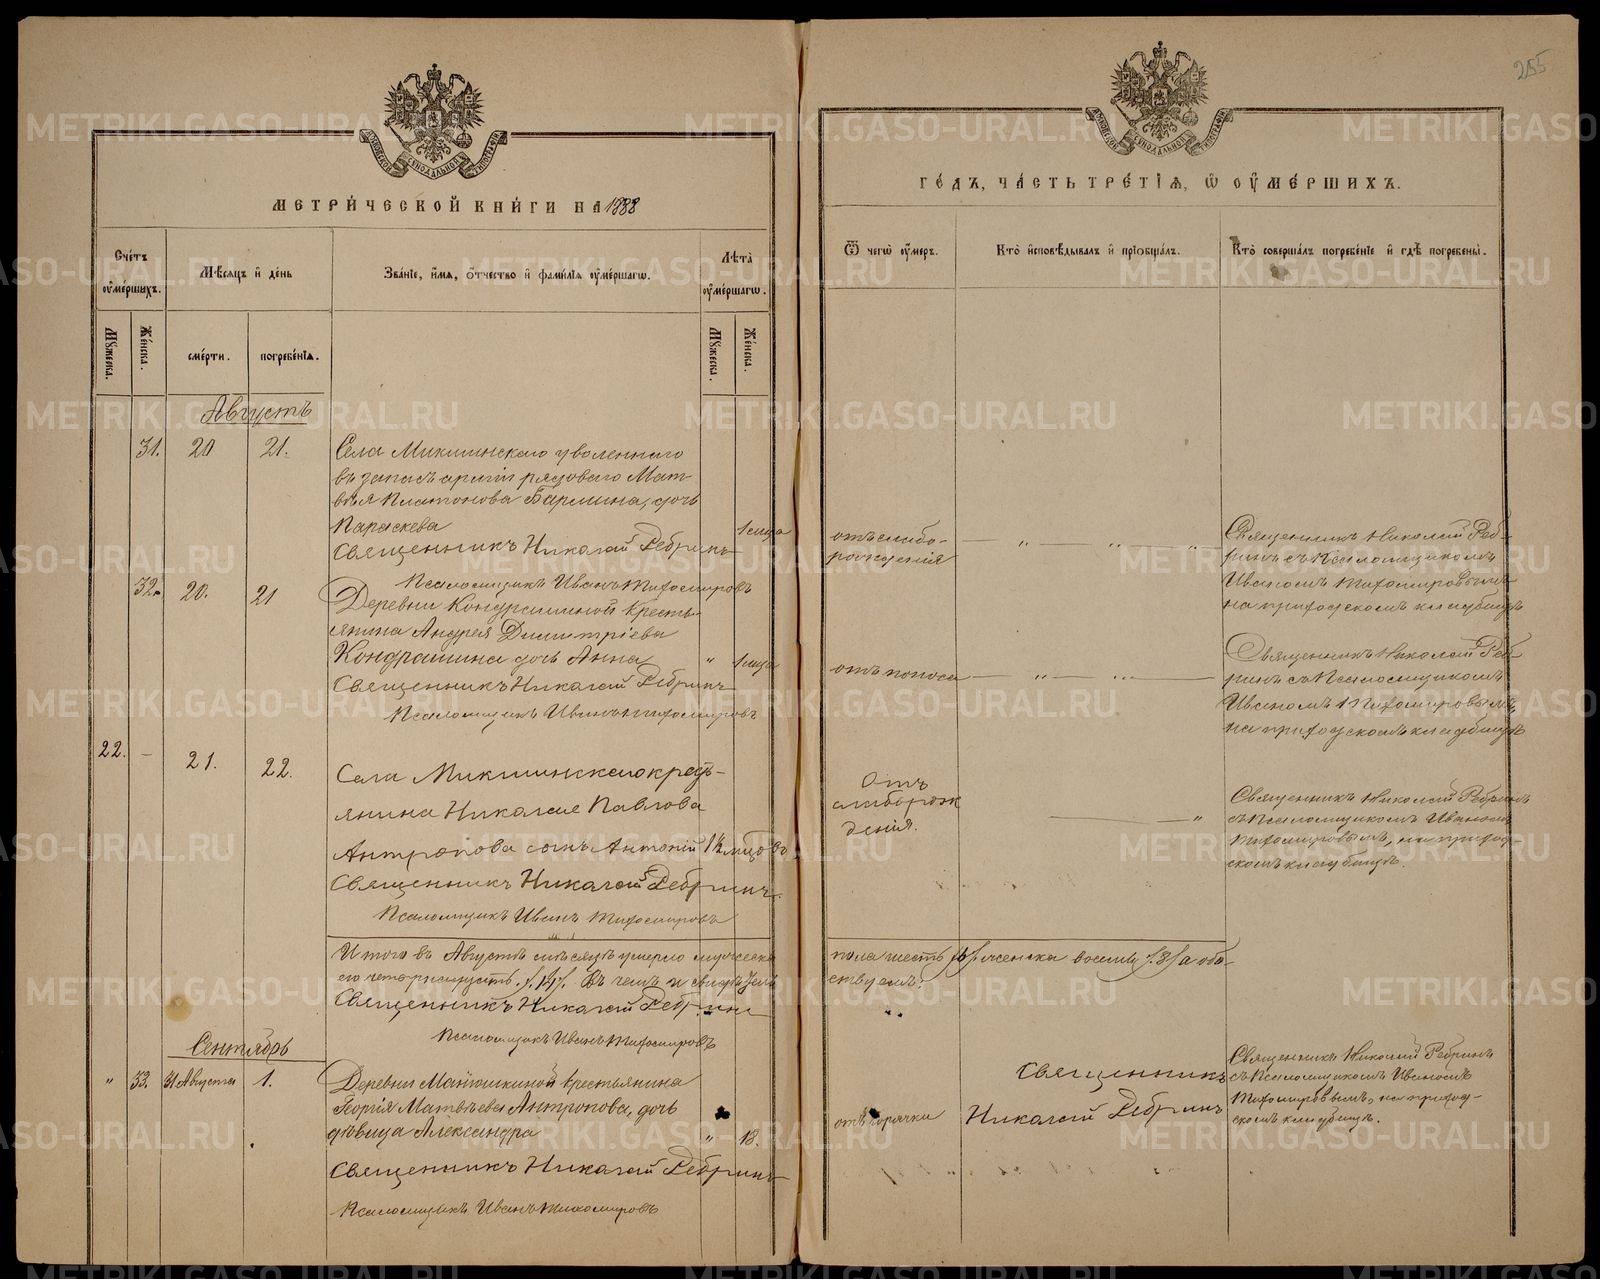 255
МЕТРИ́ЧЕСКОЙ КНИ́ГИ НА 1888
ГО́ДЪ, ЧА́СТЬ ТРЕ́ТІЯ, Ѡ ОУМЕ́РШИХЪ.
Сче́тъ оуме́ршихъ.
Мѣсяцъ и де́нь
Зва́ніе, и́мя, о́тчество и фами́лія оуме́ршагѡ.
Лѣта̀ оуме́ршагѡ.
Ѿ чегѡ̀ оу́меръ.
Кто̀ исповѣ́дывалъ и пріобща́лъ.
Кто̀ соверша́лъ погребе́ніе и гдѣ̀ погребены̀.
Мꙋжеска.
Же́нска.
сме́рти.
погребе́нія.
Мꙋжеска.
Же́нска.
Августъ
31. 20 21.
Села Микшинскаго уволеннаго
въ запасъ арміи рядоваго Мат-
вѣя Платонова Бармина, дочь
Параскева
1 мѣс.
Священникъ Николай Ребринъ
Псаломщикъ Иванъ Тихомировъ
отъ слабо-
рожденія
— „ — „ — „
Священникъ Николай Реб-
ринъ съ Псаломщикомъ
Иваномъ Тихомировымъ
на приходскомъ кладбищѣ
32. 20. 21
Деревни Кондрашиной кресть-
янина Андрея Димитріева
Кондрашина дочь Анна
„
Священникъ Николай Ребринъ
Псаломщикъ Иванъ Тихомировъ
отъ поноса
— „ — „ —
Священникъ Николай Реб-
ринъ съ Псаломщикомъ
Иваномъ Тихомировымъ
на приходскомъ кладбищѣ
22. — 21. 22.
Села Микшинскаго крест-
янина Николая Павлова
Антропова сынъ Антоній
Священникъ Николай Ребринъ.
Псаломщикъ Иванъ Тихомировъ
Отъ
слаборож
денія.
— „
Священникъ Николай Ребринъ
съ Псаломщикомъ Иваномъ
Тихомировымъ, на приход-
скомъ кладбищѣ.
Итого въ Августѣ мѣсяцѣ умерло мужеска
пола шесть /6/, женска восемь /8/ а обо-
его четырнадцать /14/. Въ чемъ и свидѣтель
ствуемъ:
Священникъ Николай Ребринъ
Псаломщикъ Иванъ Тихомировъ
Сентябрь
„ 33. 31 Августа 1.
Деревни Матюшкиной крестьянина
Георгія Матвѣева Антропова, дочь
дѣвица Александра
„ 18.
Священникъ Николай Ребринъ
Псаломщикъ Иванъ Тихомировъ
отъ горячки
Священникъ
Николай Ребринъ
Священникъ Николай Ребринъ
съ Псаломщикомъ Иваномъ
Тихомировымъ, на приход-
скомъ кладбищѣ.
METRIKI.GASO-URAL.RU